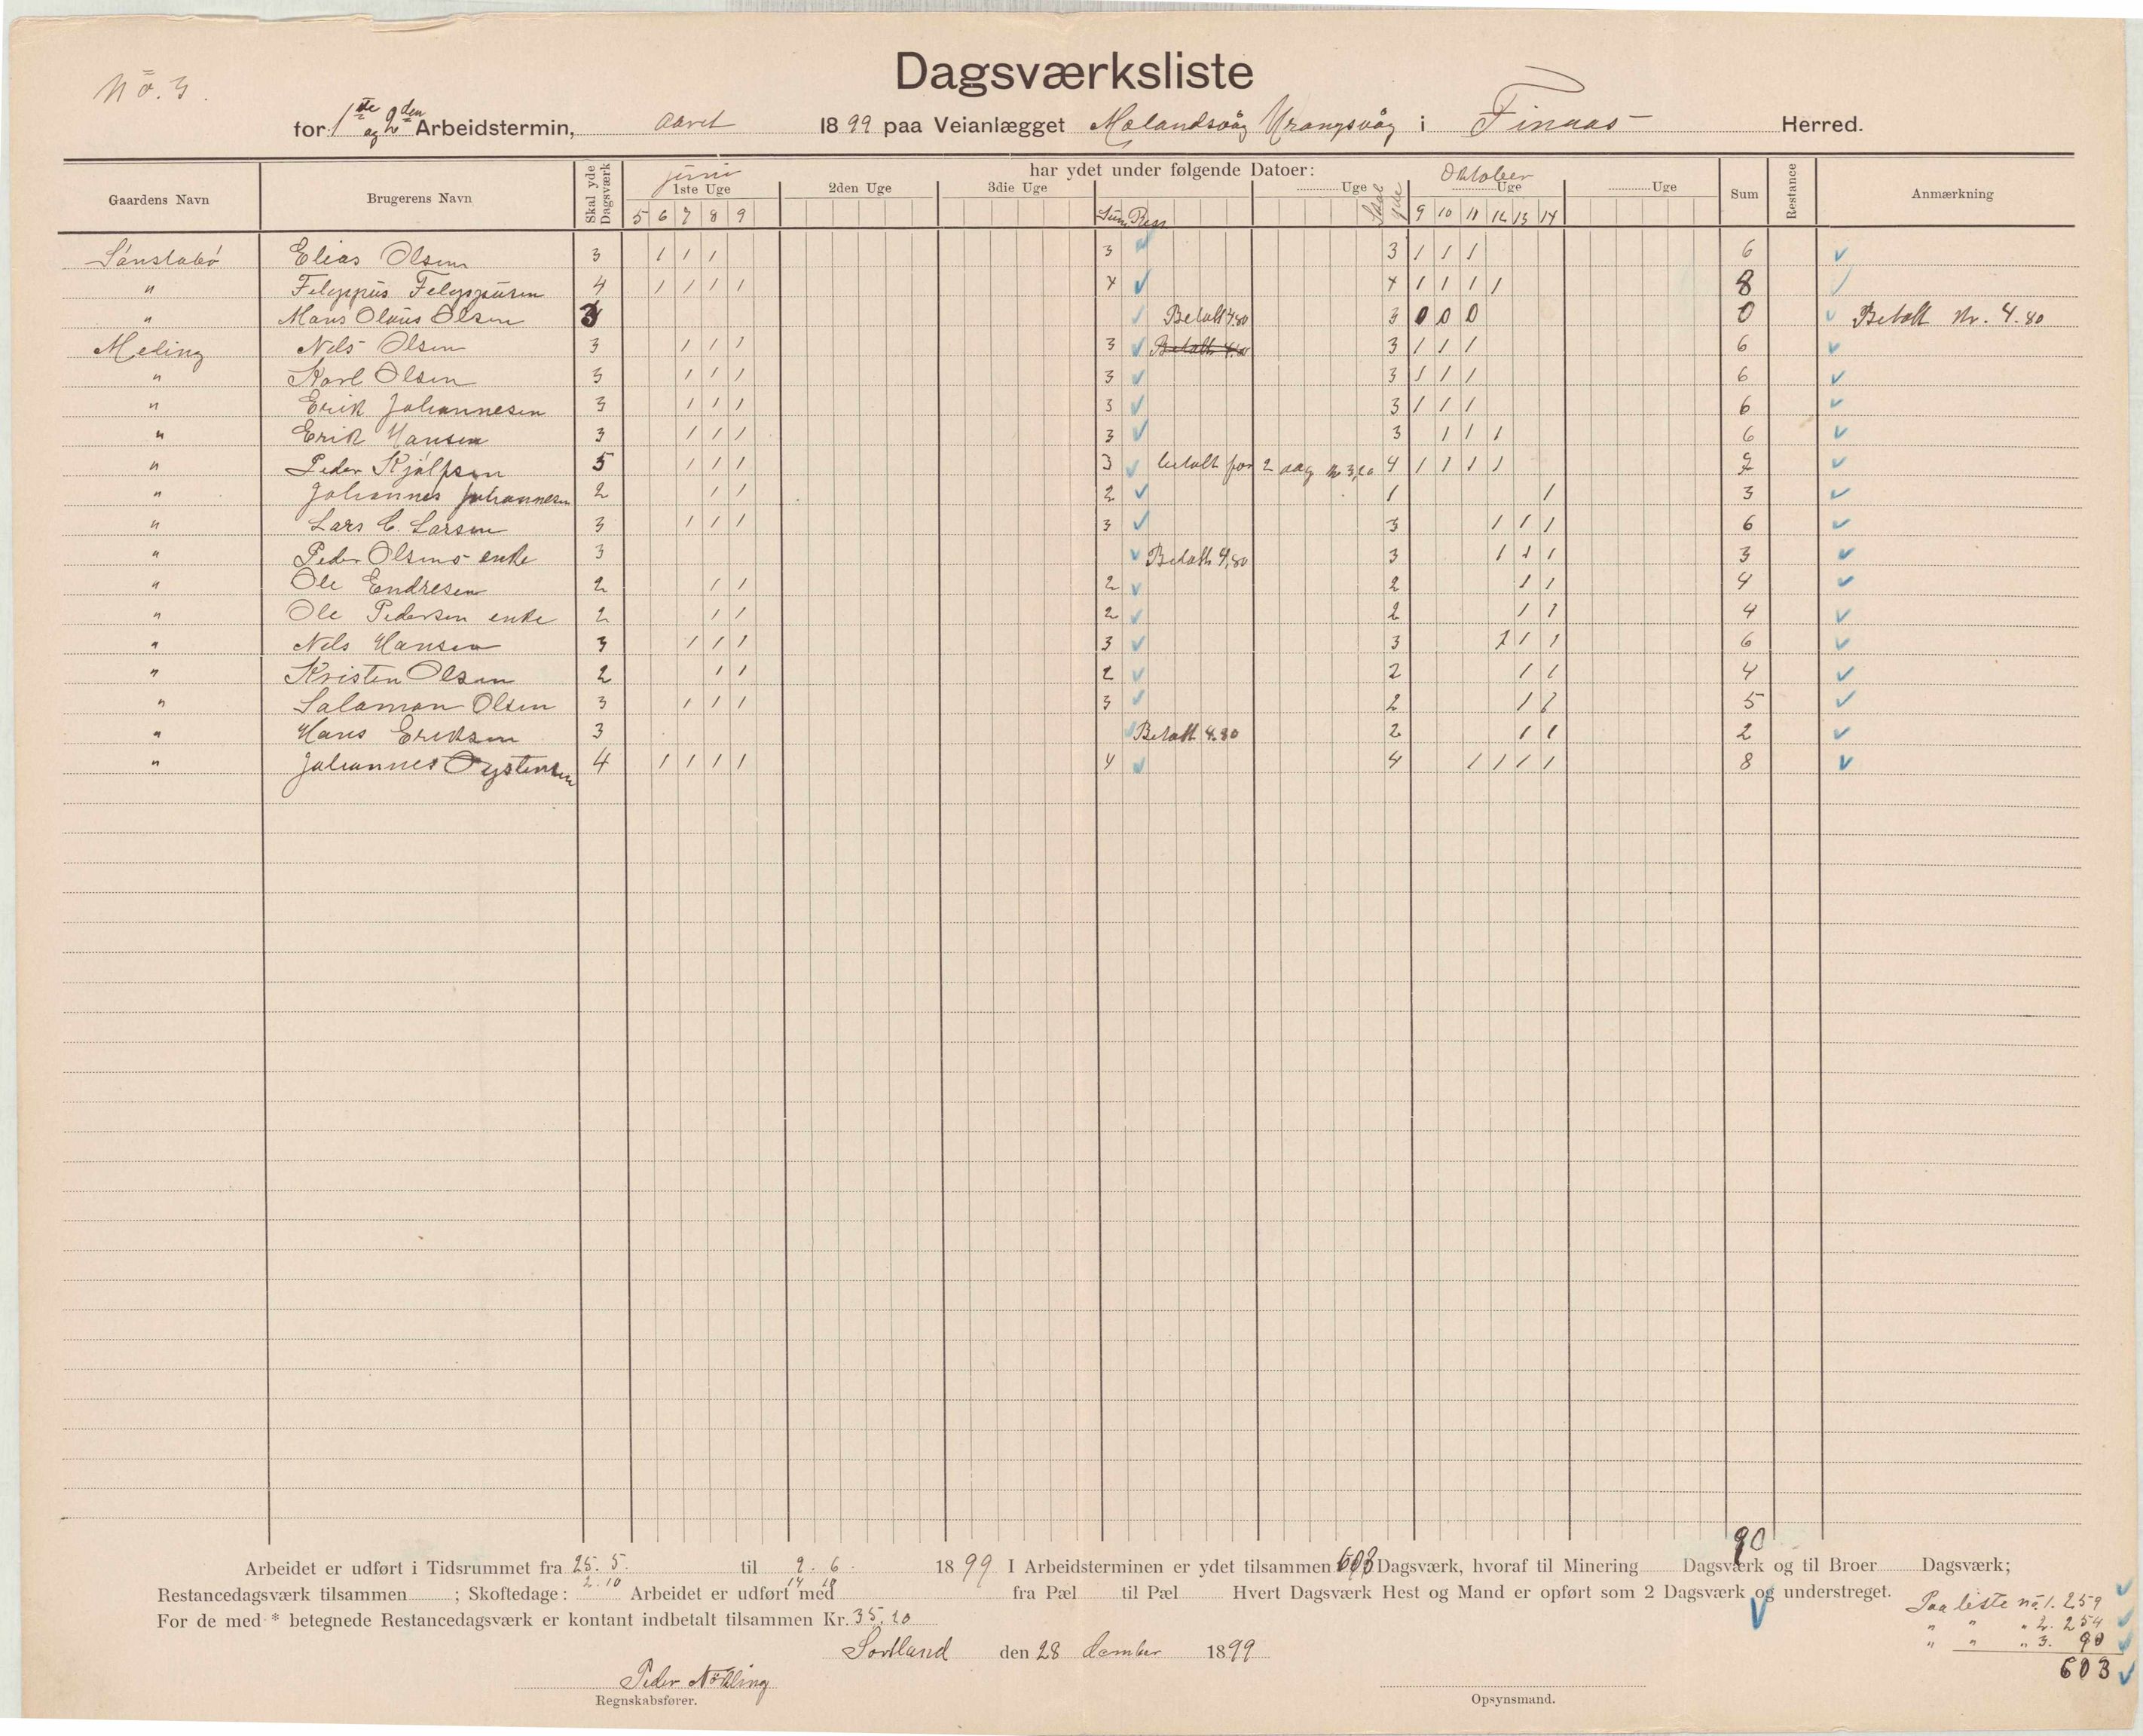 No. 3.
Dagsværksliste
for 1ste og 2den Arbeidstermin, Aaret 1899 paa Veianlægget Mælandsvåg Vrangsvåg i Finaas Herred.
Gaardens Navn Brugerens Navn Skal yde Dagsværk har ydet under følgende Datoer: Sum Restance Anmærkning
juni Oktober
1ste Uge 2den Uge 3die Uge Uge Skal yde Uge Uge
5 6 7 8 9 Sum Rest 9 10 11 12 13 14
Elias Olsen 3 1 1 1 3 3 1 1 1 6
" 4 1 1 1 1 4 4 1 1 1 1 8
" Hans Olaus Olsen 3 Betalt 4.80 3 0 0 0 0 Betalt Kr. 4.80
Meling Nils Olsen 3 1 1 1 3 Betalt 4.80 3 1 1 1 6
" Karl Olsen 3 1 1 1 3 3 1 1 1 6
" Erik Johannesen 3 1 1 1 3 3 1 1 1 6
" Erik Hansen 3 1 1 1 3 3 1 1 1 6
" Peder 5 1 1 1 3 betalt for 2 dag Kr 3,20 4 1 1 1 1 7
" Johannes Johannesen 2 1 1 2 1 1 3
" Lars C. Larsen 3 1 1 1 3 3 1 1 1 6
" Peder Olsens enke 3 Betalt 4,80 3 1 1 1 3
" Ole Endresen 2 1 1 2 2 1 1 4
" Ole Pedersen enke 2 1 1 2 2 1 1 4
" Nils Hansen 3 1 1 1 3 3 1 1 1 6
" Kristen Olsen 2 1 1 2 2 1 1 4
" Salamon Olsen 3 1 1 1 3 2 1 1 5
" Hans Eriksen 3 Betalt 4.80 2 1 1 2
" Johannes Øystensen 4 1 1 1 1 4 4 1 1 1 1 8
90
Arbeidet er udført i Tidsrummet fra 25. 5. til 9. 6. 1899 I Arbeidsterminen er ydet tilsammen 603 Dagsværk, hvoraf til Minering Dagsværk og til Broer Dagsværk;
2.10 14 10
Restancedagsværk tilsammen ; Skoftedage: Arbeidet er udført med fra Pæl til Pæl Hvert Dagsværk Hest og Mand er opført som 2 Dagsværk og understreget.
For de med * betegnede Restancedagsværk er kontant indbetalt tilsammen Kr. 35,20
Paa liste no. 1. 259
" " " 2. 254
" " " 3. 90
603
Sortland den 28 1899
Peder
Regnskabsfører. Opsynsmand.